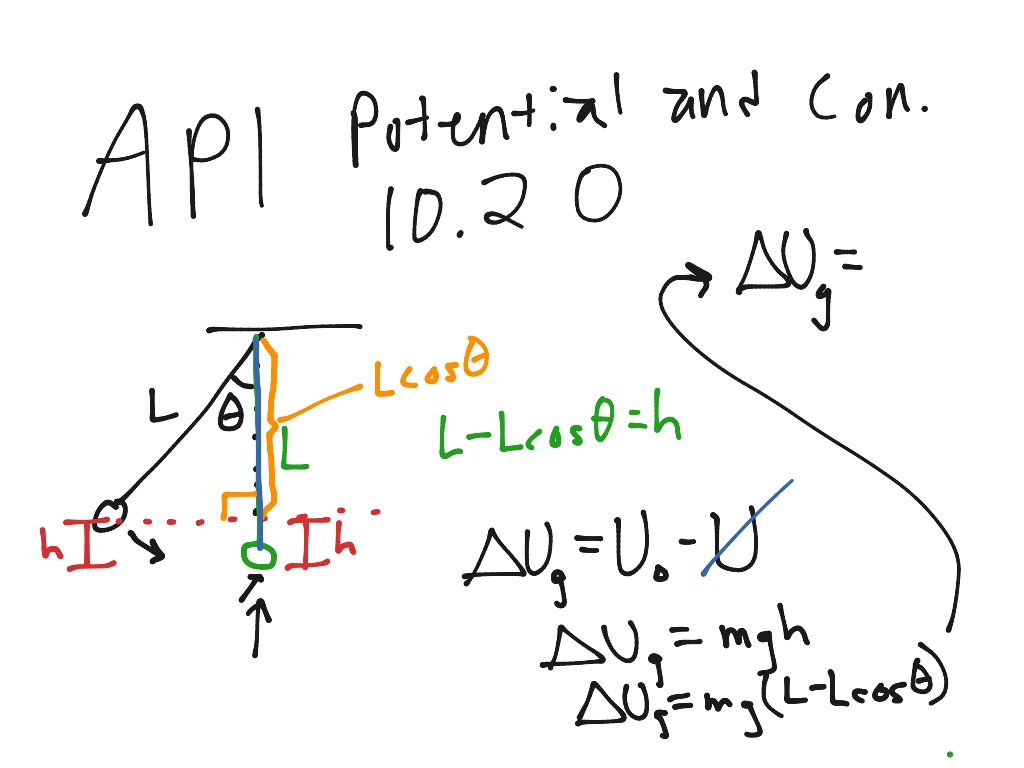 AP1 Potential and Con.
10.20
ΔUg =
Lcosθ
L
θ
L
L-Lcosθ=h
h
h
ΔUg = U₀ - U
ΔUg = mgh
ΔUg = mg(L-Lcosθ)